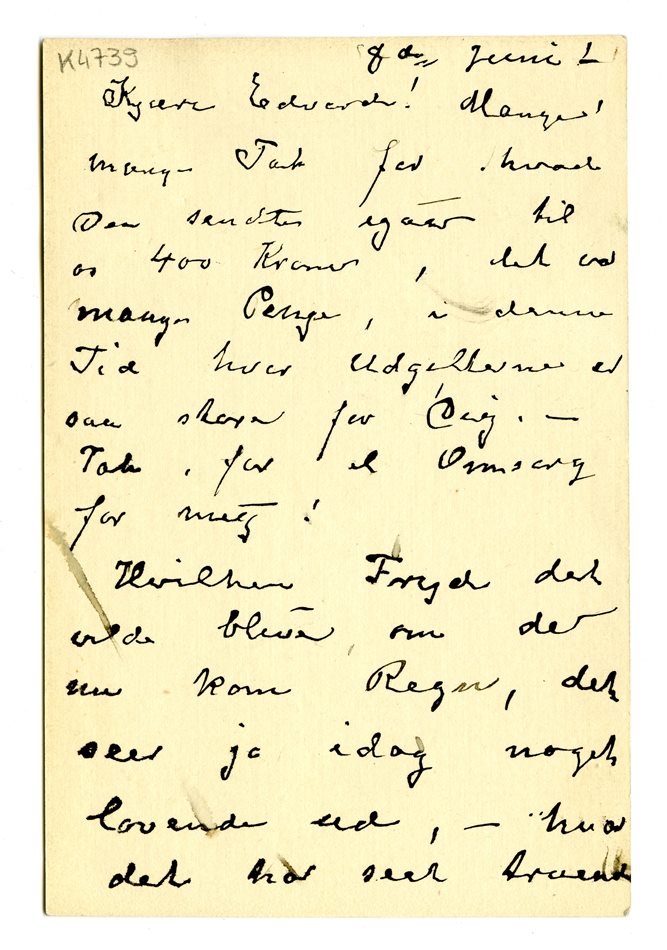 K4739
8de Juni
Kjære Edvard! Mange!
mange Tak for hvad
Du sendte igaar til
os 400 Kroner, det va
mange Penge, i denne
Tid hvor Udgifterne er
saa store for Dig. —
Tak, for al Omsorg
for meig!
Hvilken Fryd det
vilde bleive om det
nu kom Regn, det
seer jo idag noget
lovende ud, — hvor
det har seet truende